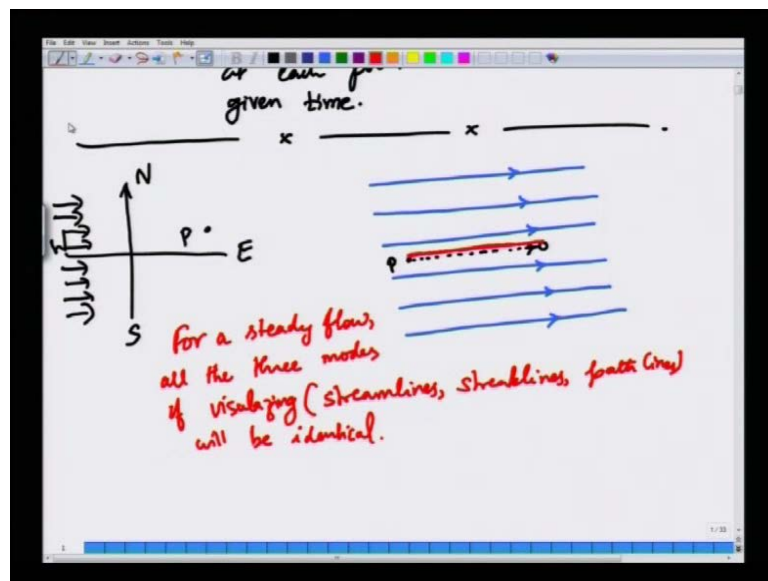 File Edit View Insert Actions Tools Help
at each
given time.
x x
N
P
E
S
P
For a steady flow,
all the three modes
of visulazing (streamlines, streaklines, path lines)
will be identical.
1 / 33
1